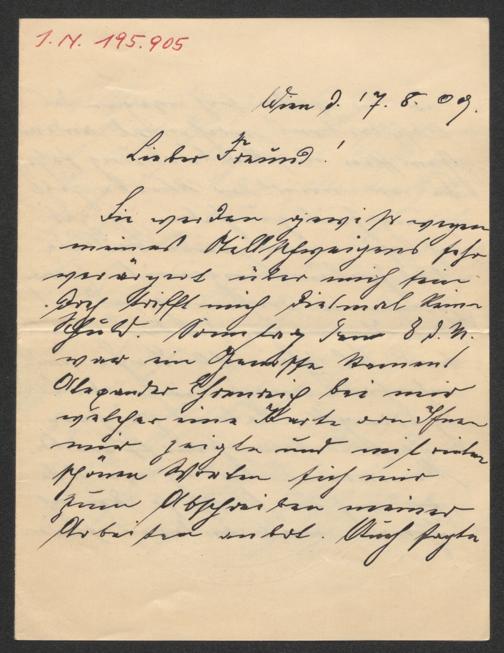 I.N. 195.905
Wien d. 17. 8. 09.
Lieber Freund!
Sie werden gewiß wegen
meines Stillschweigens sehr
verärgert über mich sein
Doch trifft mich diesmal keine
Schuld. Sonntag den 8 d. M.
war ein Genosse namens
Alexander Ehrenreich bei mir
welcher eine Karte von Ihnen
mir zeigte und mit vielen
schönen Worten sich mir
zum Abschreiben meiner
Arbeiten anbot. Auch sagte